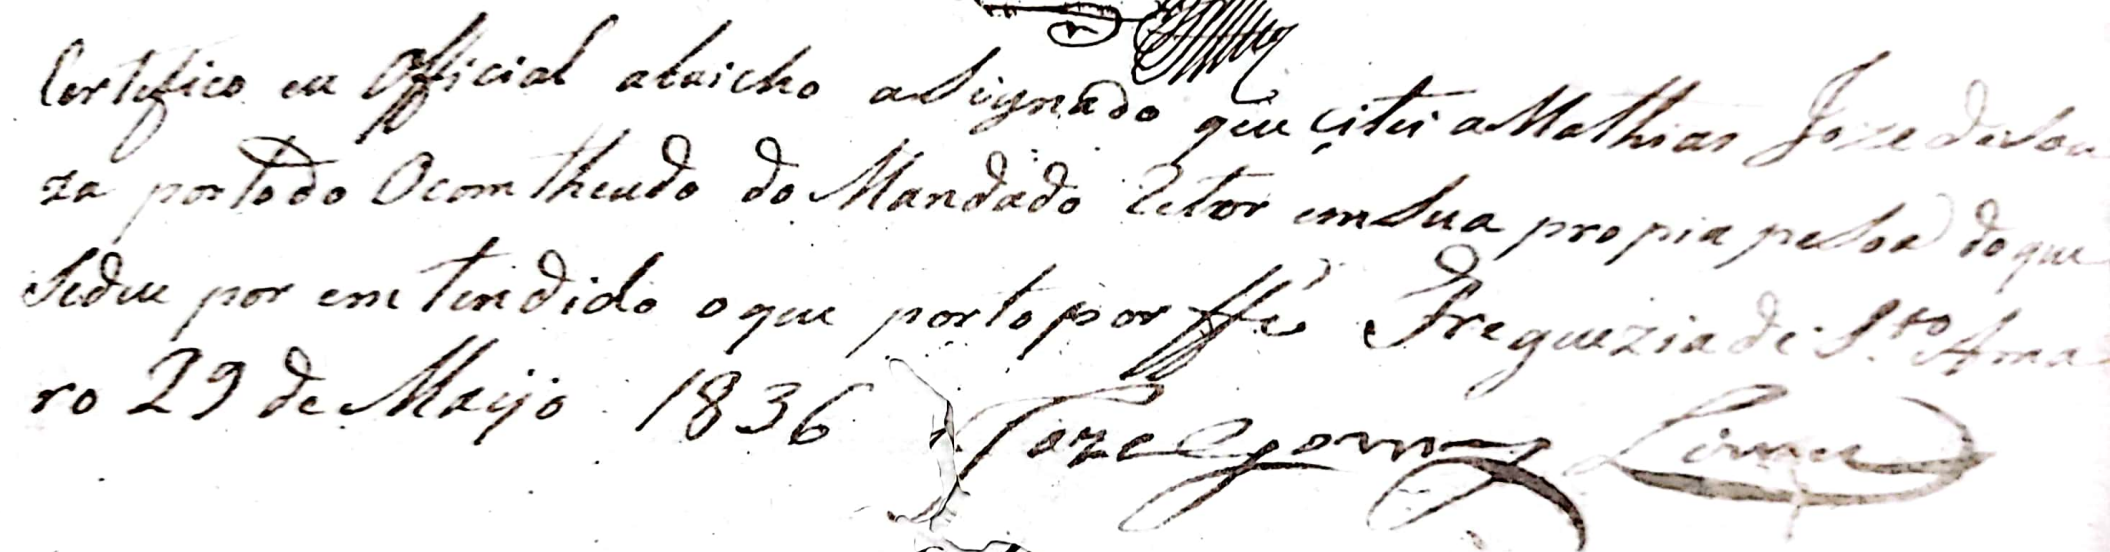 Certefico eu Official abaicho asignado que citei a Mathias Joze de Sou
za por todo O comtheudo do Mandado Retro em Sua propia pesoa do que
Sedeu por emtendido o que porto por ffé Freguezia de S.to Ama
ro 29 de Maijo 1836 Joze Gomes